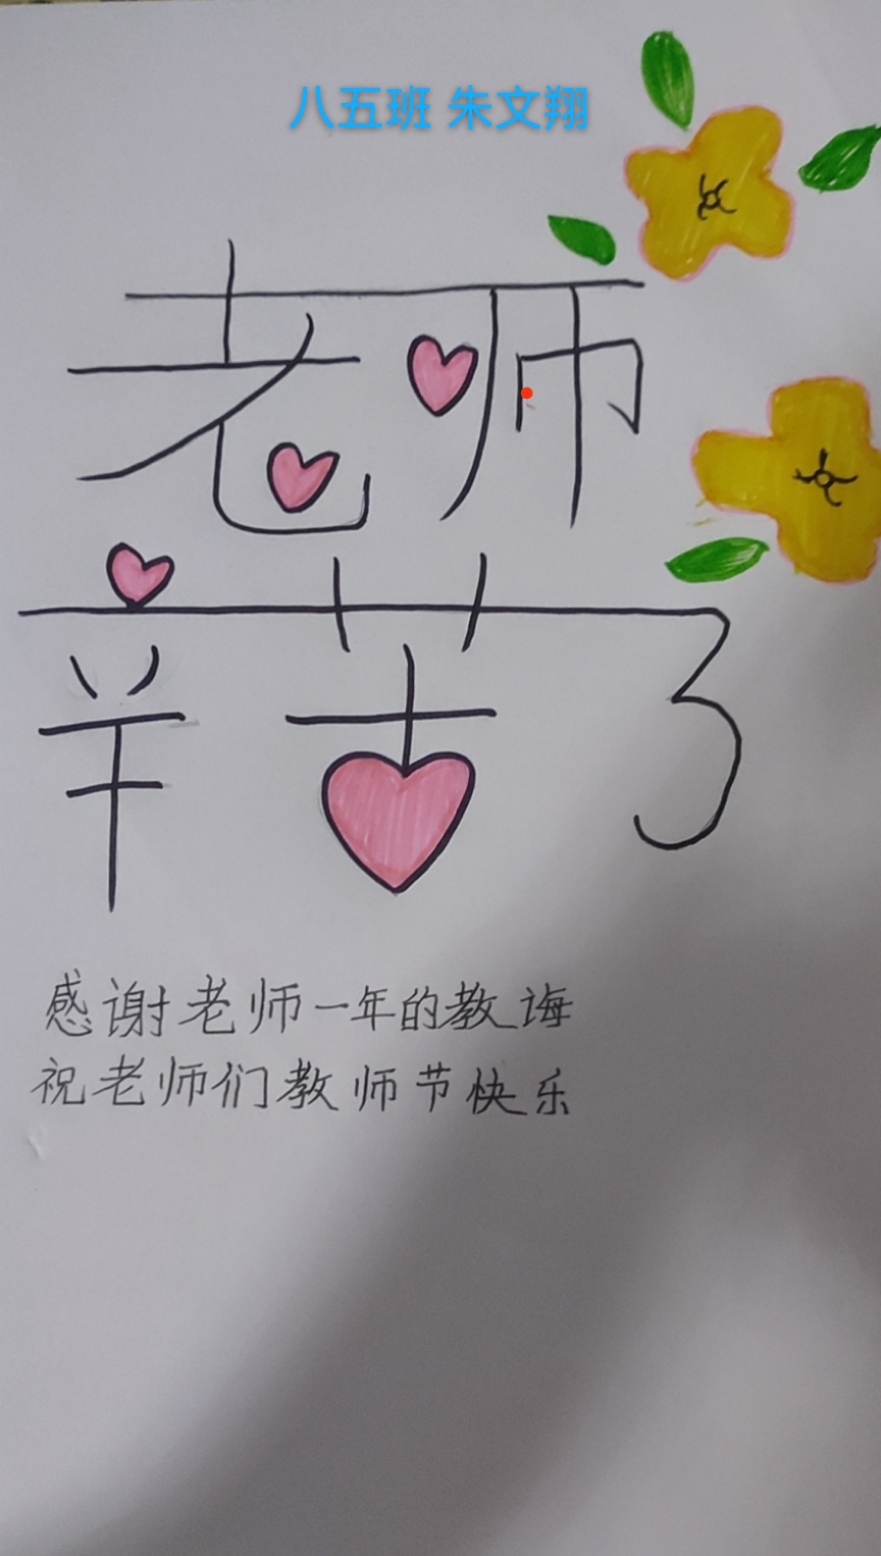 八五班 朱文翔
老师
辛苦了
感谢老师一年的教诲
祝老师们教师节快乐